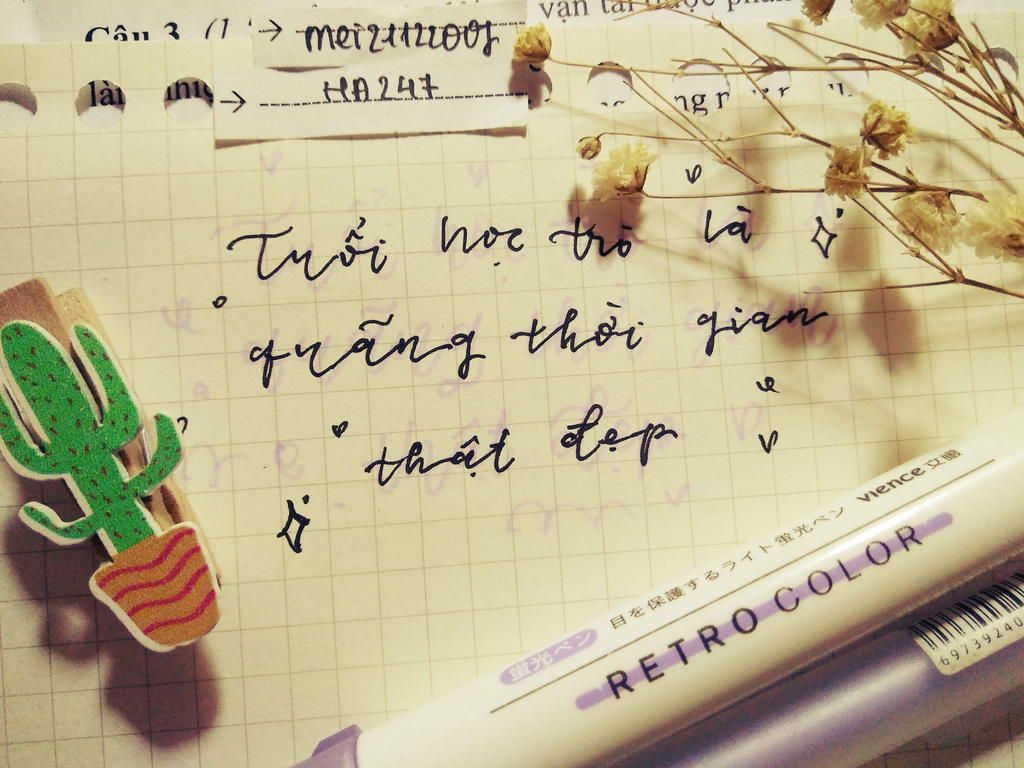 vận tải được
Câu 3. (1
→ mei21122001
làn
→ HA247
Tuổi học trò là
quãng thời gian
thật đẹp
蛍光ペン 目を保護するライト蛍光ペン vience
RETRO COLOR
6973924